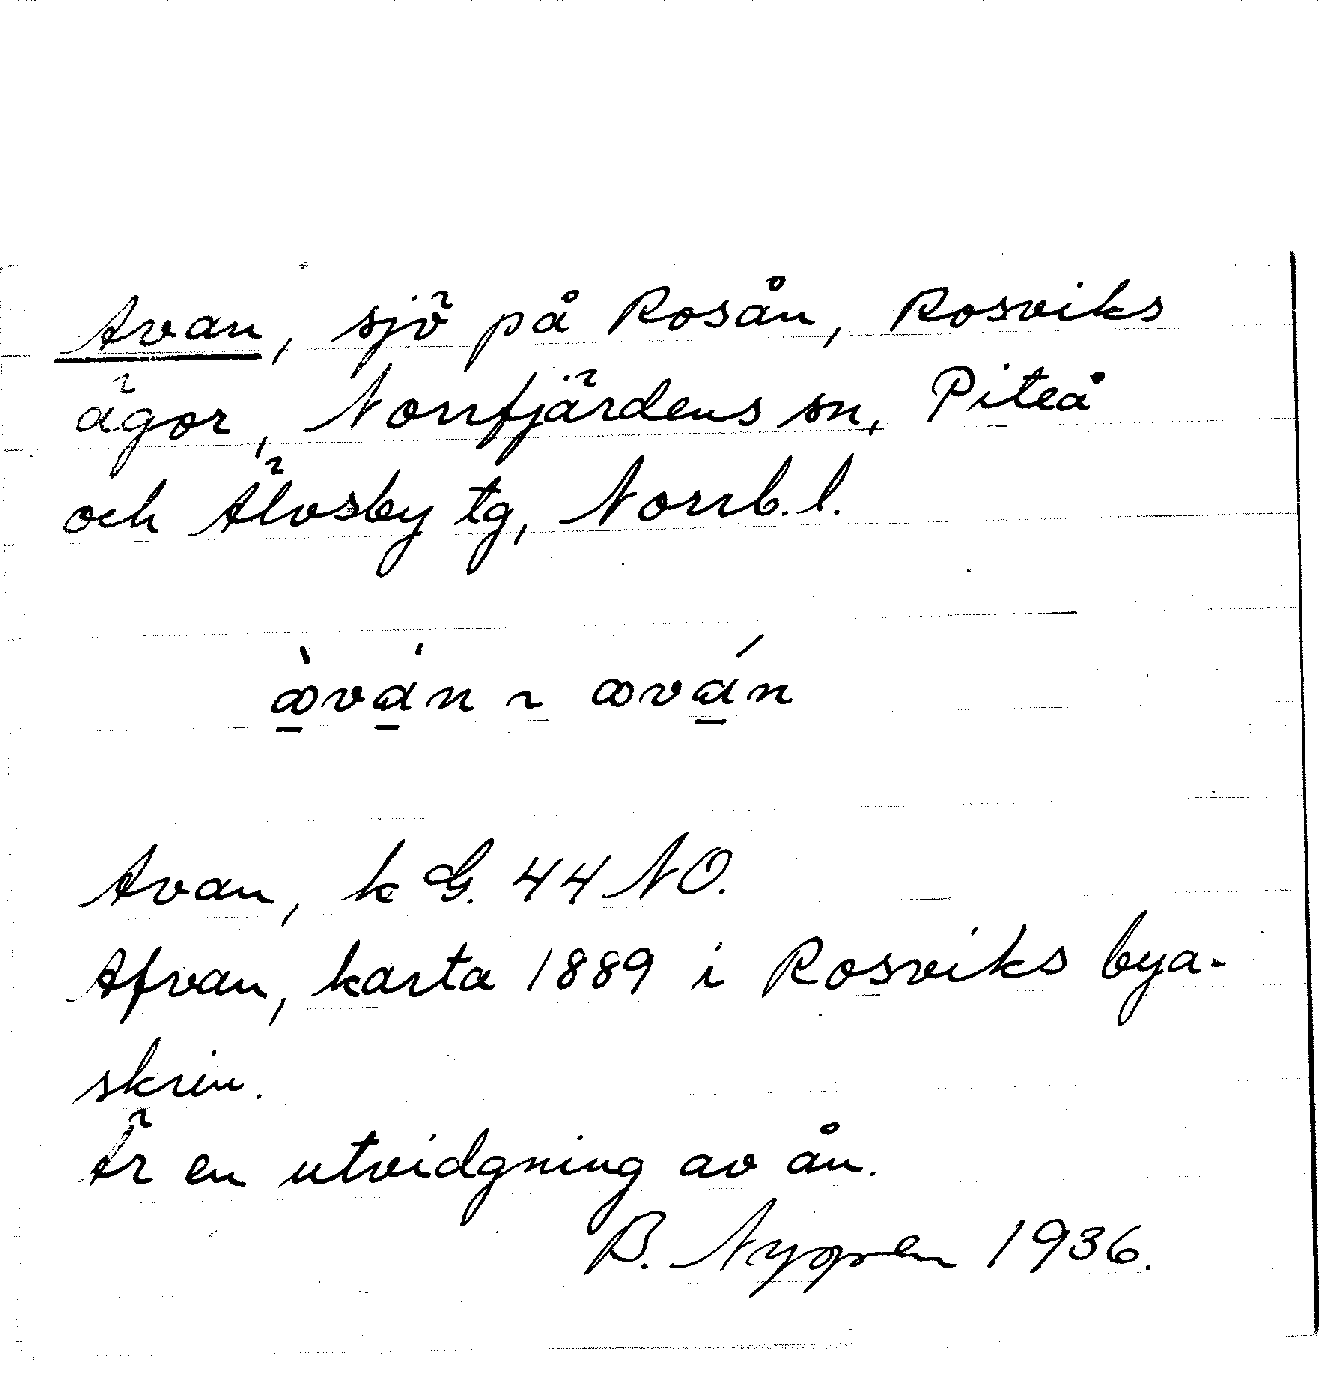 Avan, sjö på Rosån, Rosviks
ägor, Norrfjärdens sn, Piteå
och Älvsby tg, Norrb. l.
à̱vá̱n ~ avá̱n
Avan, k G. 44 NO.
Afvan, karta 1889 i Rosviks bya-
skrin.
Är en utvidgning av ån.
B. Nygren 1936.